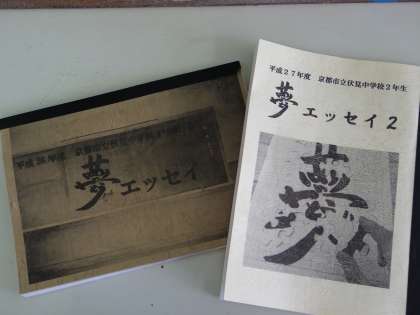 平成26年度 京都市立伏見中学校
夢エッセイ
平成27年度 京都市立伏見中学校2年生
夢エッセイ2
夢